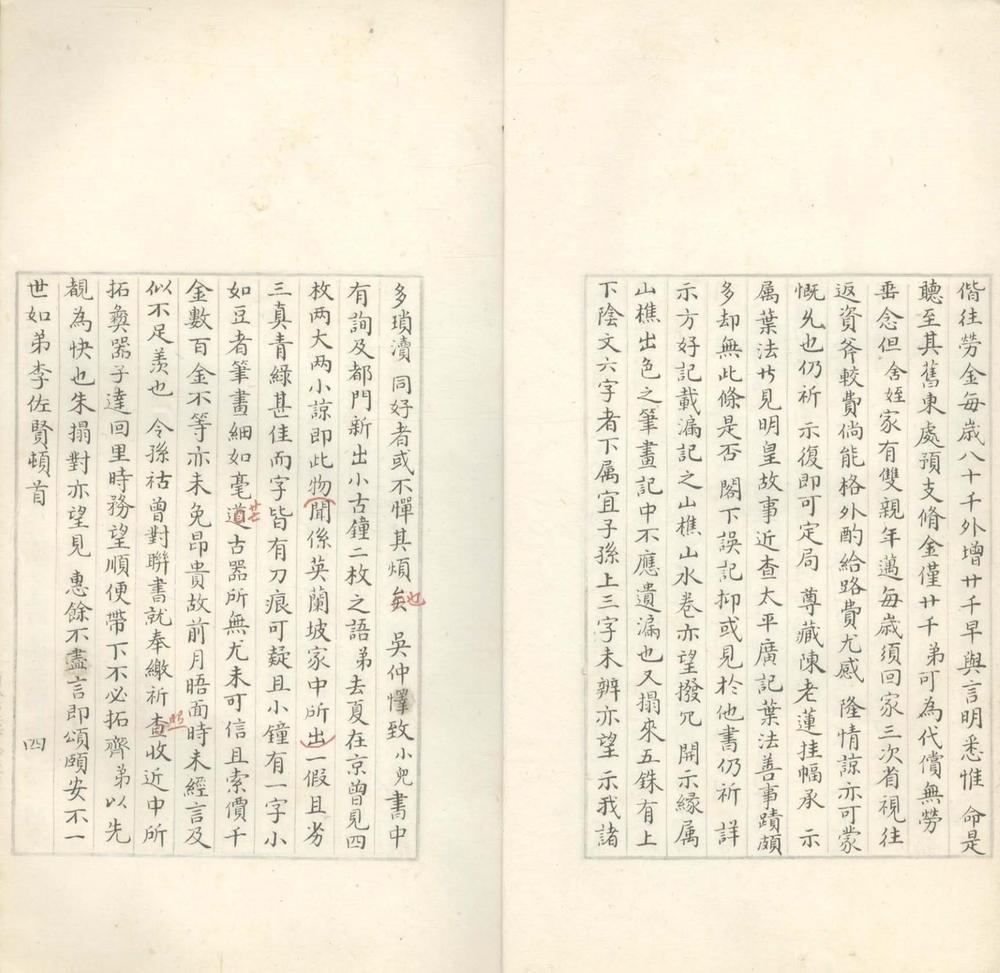 偕往勞金每歲八十千外增廿千早與言明悉惟 命是
聽至其舊東處預支脩金僅廿千弟可為代償無勞
垂念但舍姪家有雙親年邁每歲須回家三次省視往
返資斧較費倘能格外酌給路費尤感 隆情諒亦可蒙
慨允也仍祈 示復即可定局 尊藏陳老蓮挂幅承 示
属葉法廾見明皇故事近查太平廣記葉法善事蹟頗
多却無此條是否 閣下誤記抑或見於他書仍祈 詳
示方好記載漏記之山樵山水卷亦望撥冗 開示緣属
山樵出色之筆畫記中不應遺漏也又搨來五銖有上
下陰文六字者下属宜子孫上三字未辨亦望 示我諸
多瑣瀆同好者或不憚其煩矣也 吳仲懌致小兒書中
有詢及都門新出小古鐘二枚之語弟去夏在京曾見四
枚两大两小諒即此物聞係英蘭坡家中所出一假且劣
三真青綠甚佳而字皆有刀痕可疑且小鐘有一字小
如豆者筆畫細如毫芒道古器所無尤未可信且索價千
金數百金不等亦未免昂貴故前月晤面時未經言及
似不足羨也 令孫祜曾對聯書就奉繳祈查照收近中所
拓彝器子達回里時務望順便帶下不必拓齊弟以先
覩為快也朱搨對亦望見 惠餘不盡言即頌頤安不一
世如弟李佐賢頓首
四